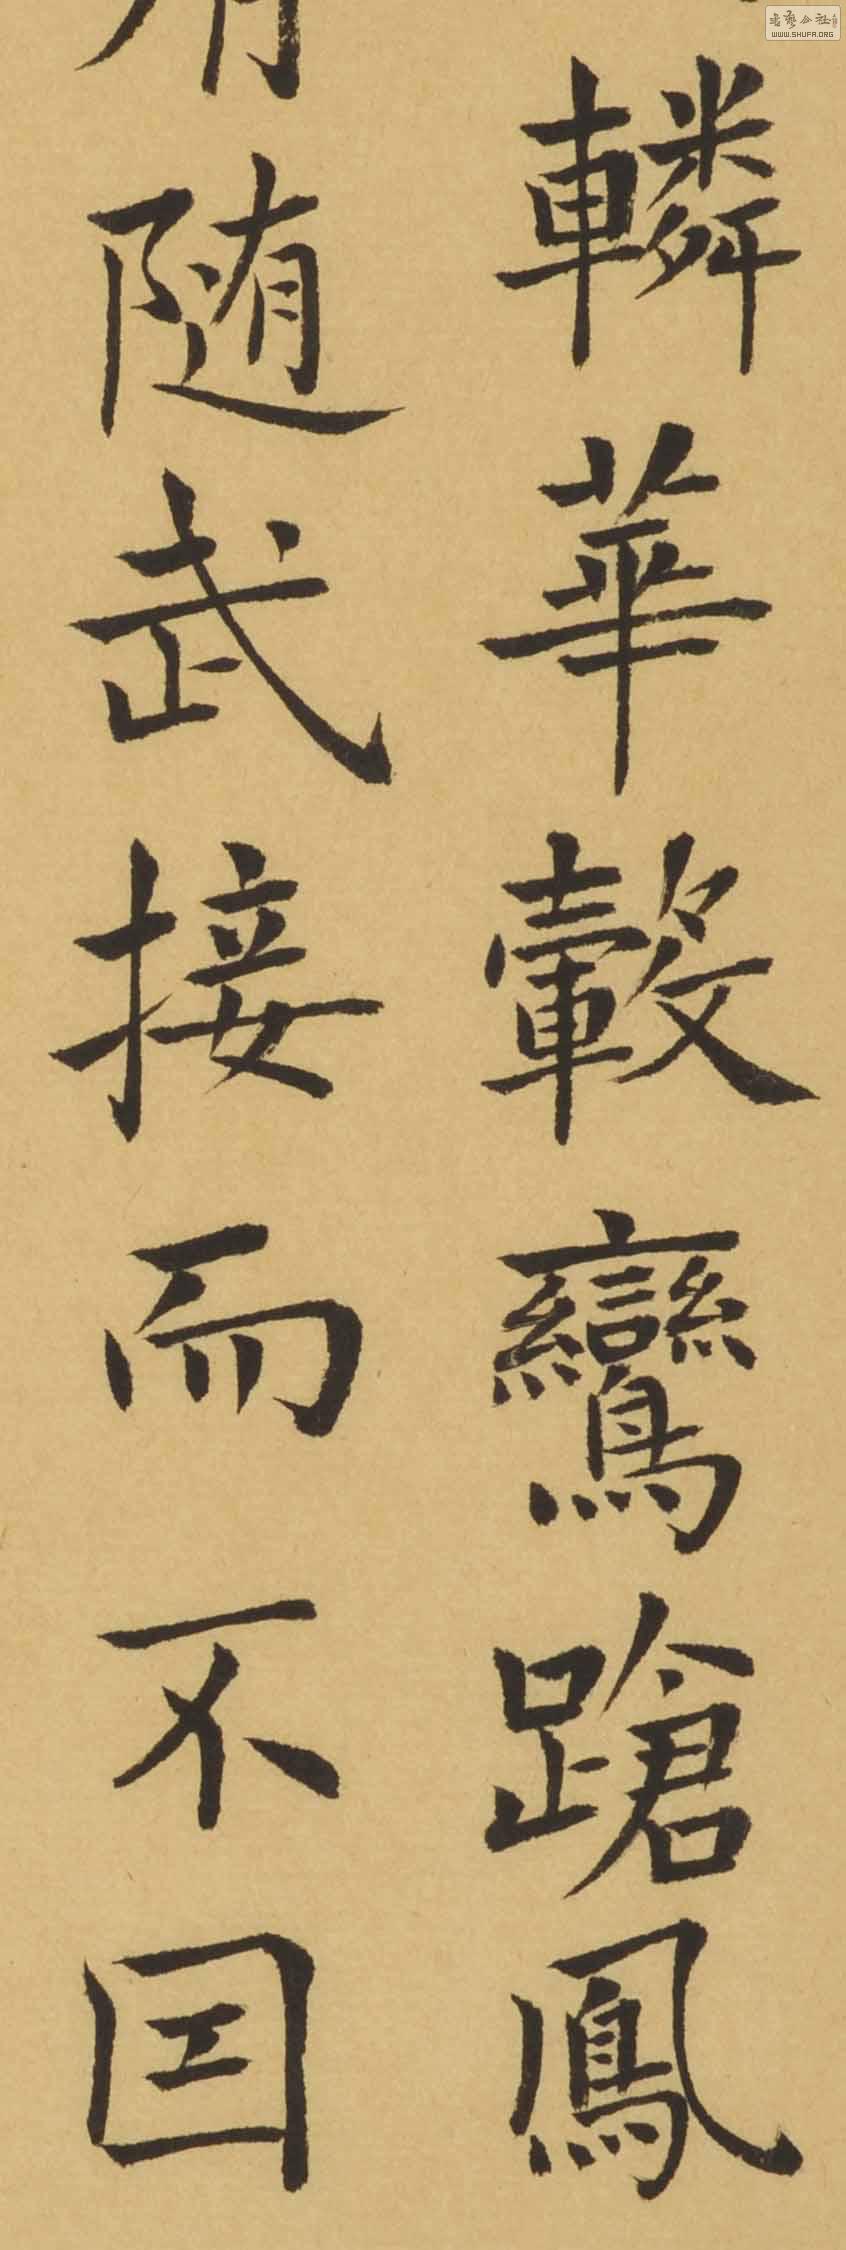 轔華轂鸞蹌鳳
随武接而不囙
书艺公社
WWW.SHUFA.ORG